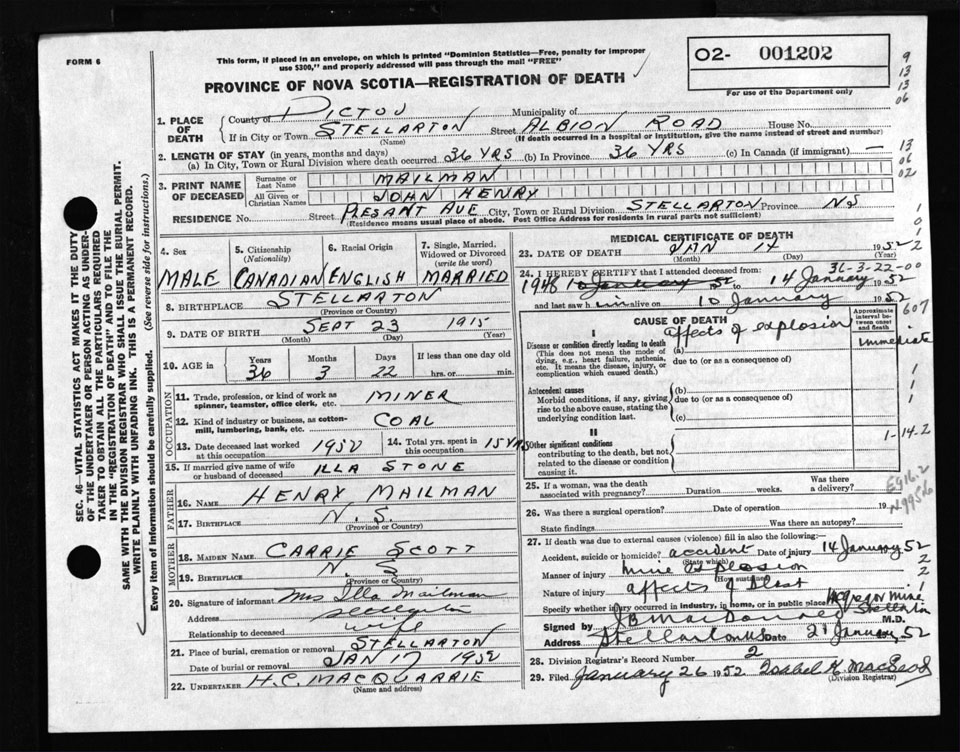 FORM 6
This form, if placed in an envelope, on which is printed "Dominion Statistics—Free, penalty for improper
use $300," and properly addressed will pass through the mail "FREE"
PROVINCE OF NOVA SCOTIA—REGISTRATION OF DEATH
O2- 001202
For use of the Department only
9
13
13
06
1. PLACE OF DEATH
County of PICTOU Municipality of
If in City or Town STELLARTON Street ALBION ROAD House No.
(Name) (If death occurred in a hospital or institution, give the name instead of street and number)
2. LENGTH OF STAY (in years, months and days)
(a) In City, Town or Rural Division where death occurred 36 YRS (b) In Province 36 YRS (c) In Canada (if immigrant) —
13
06
02
3. PRINT NAME OF DECEASED
Surname or Last Name MAILMAN
All Given or Christian Names JOHN HENRY
RESIDENCE No. Street PLESANT AVE City, Town or Rural Division STELLARTON Province NS
(Residence means usual place of abode. Post Office Address for residents in rural parts not sufficient)
4. Sex MALE
5. Citizenship (Nationality) CANADIAN
6. Racial Origin ENGLISH
7. Single, Married, Widowed or Divorced (write the word) MARRIED
8. BIRTHPLACE STELLARTON
(Province or Country)
9. DATE OF BIRTH SEPT 23 1915
(Month) (Day) (Year)
10. AGE in Years 36 Months 3 Days 22 If less than one day old hrs. or min.
OCCUPATION
11. Trade, profession, or kind of work as spinner, teamster, office clerk, etc. MINER
12. Kind of industry or business, as cotton-mill, lumbering, bank, etc. COAL
13. Date deceased last worked at this occupation 1952
14. Total yrs. spent in this occupation 15 YRS
15. If married give name of wife or husband of deceased ILLA STONE
FATHER
16. NAME HENRY MAILMAN
17. BIRTHPLACE N.S.
(Province or Country)
MOTHER
18. MAIDEN NAME CARRIE SCOTT
19. BIRTHPLACE N S
(Province or Country)
20. Signature of informant Mrs Illa Mailman
Address Stellarton
Relationship to deceased wife
21. Place of burial, cremation or removal STELLARTON
Date of burial or removal JAN 17 1952
22. UNDERTAKER H.C. MACQUARRIE
(Name and address)
MEDICAL CERTIFICATE OF DEATH
23. DATE OF DEATH JAN 14 1952
(Month) (Day)
36-3-22-00
24. I HEREBY CERTIFY that I attended deceased from
1948 10 January 52 to 14 January 1952
and last saw him alive on 10 January 1952
CAUSE OF DEATH
Approximate interval between onset and death
607
I
Disease or condition directly leading to death (a) affects of explosion immediate
(This does not mean the mode of dying, e.g., heart failure, asthenia, etc. It means the disease, injury, or complication which caused death.)
due to (or as a consequence of)
Antecedent causes
Morbid conditions, if any, giving rise to the above cause, stating the underlying condition last.
(b)
due to (or as a consequence of)
(c)
II
Other significant conditions
contributing to the death, but not related to the disease or condition causing it.
1-14-2
25. If a woman, was the death associated with pregnancy? Duration weeks. Was there a delivery?
E916.2
N995.6
26. Was there a surgical operation? Date of operation 19
State findings Was there an autopsy?
27. If death was due to external causes (violence) fill in also the following:—
Accident, suicide or homicide? accident Date of injury 14 January 52
(State which)
Manner of injury mine explosion
(How sustained)
Nature of injury affects of blast
Specify whether injury occurred in industry, in home, or in public place McGregor mine Stellarton
Signed by J B MacDonald M.D.
Address Stellarton NS Date 21 January 52
28. Division Registrar's Record Number 2
29. Filed January 26 1952 Isabel H. MacLeod
(Division Registrar)
SEC. 46—VITAL STATISTICS ACT MAKES IT THE DUTY
OF THE UNDERTAKER OR PERSON ACTING AS UNDER-
TAKER TO OBTAIN ALL THE PARTICULARS REQUIRED
IN THE "REGISTRATION OF DEATH" AND TO FILE THE
SAME WITH THE DIVISION REGISTRAR WHO SHALL ISSUE THE BURIAL PERMIT.
WRITE PLAINLY WITH UNFADING INK. THIS IS A PERMANENT RECORD.
Every item of information should be carefully supplied. (See reverse side for instructions.)